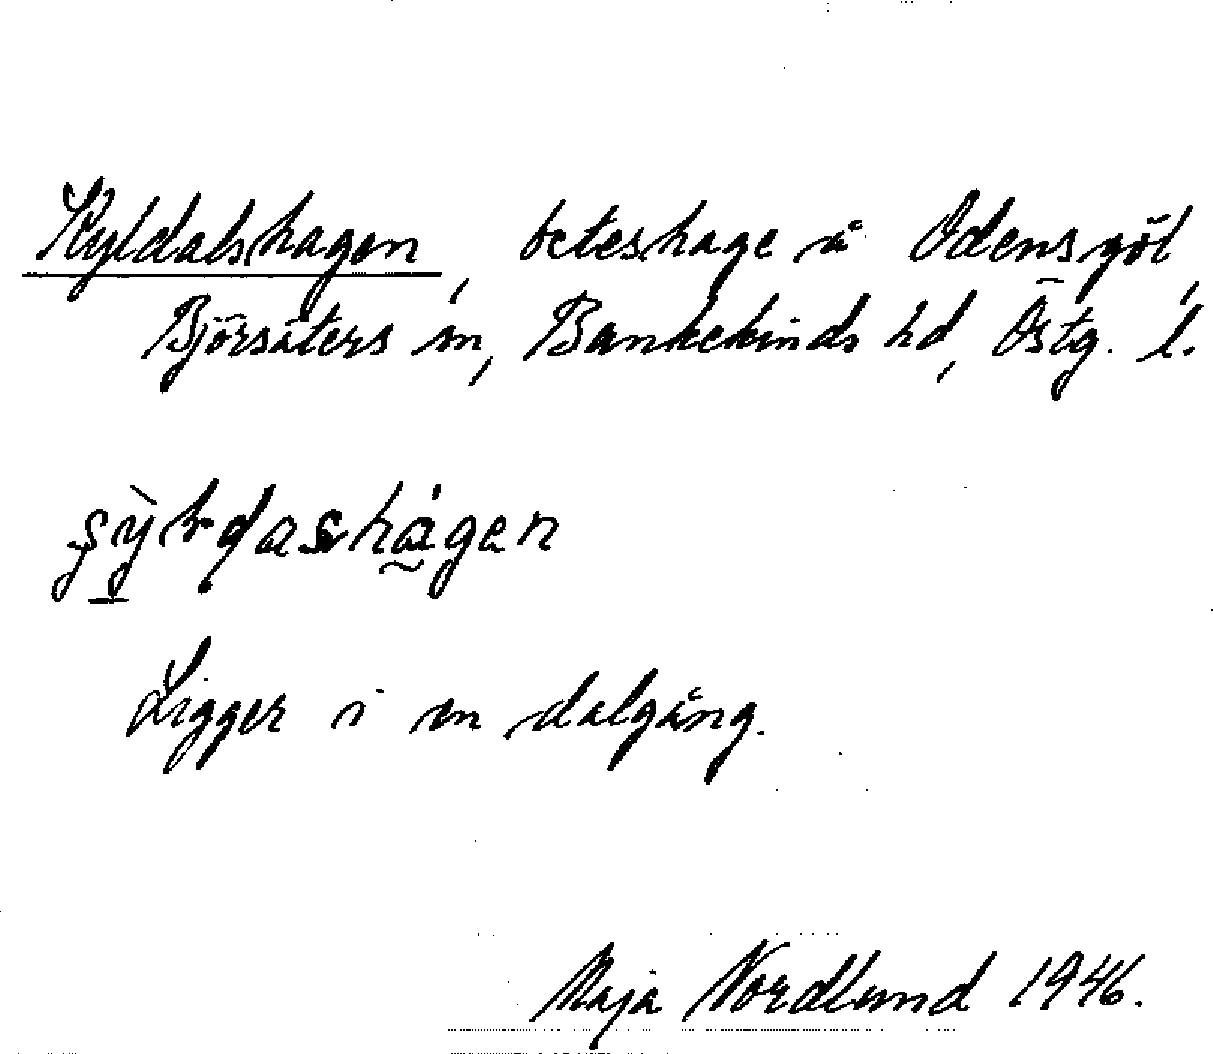 Kyldalshagen, beteshage å Odensgöl,
Björsäters sn, Bankekinds hd, Östg. l.
Ligger i en dalgång.
Maja Nordlund 1946.